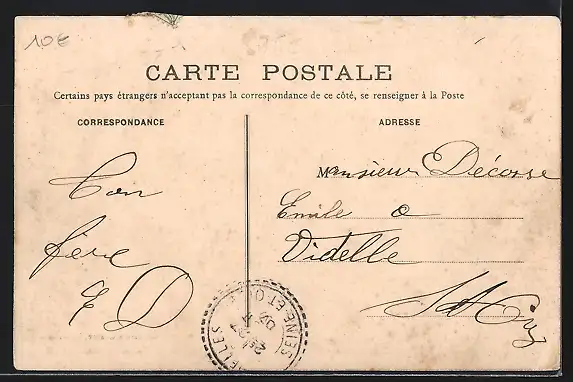 10€
CARTE POSTALE
Certains pays étrangers n'acceptant pas la correspondance de ce côté, se renseigner à la Poste
CORRESPONDANCE
ADRESSE
Ton
frère
E D
Monsieur Décosse
Emile a
Videlle
S et O
SEINE-ET-OISE
07